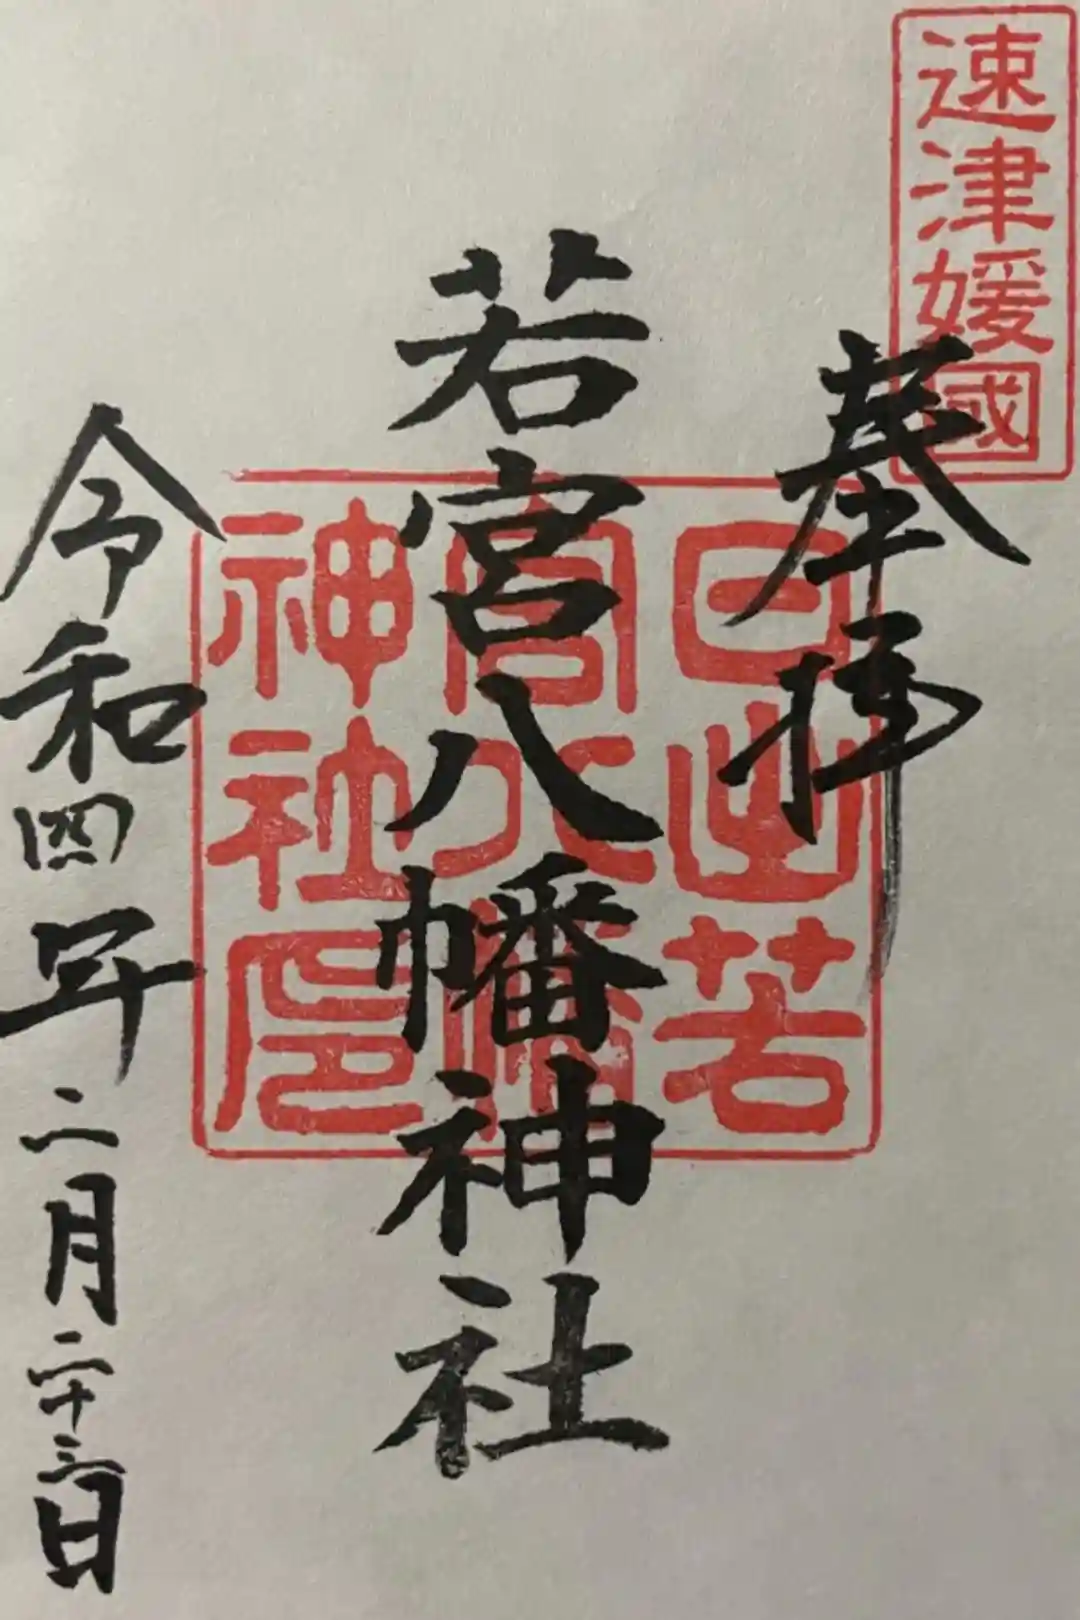 速津媛國
奉拝
日出若
宮八幡
神社印
若宮八幡神社
令和四年二月二十三日